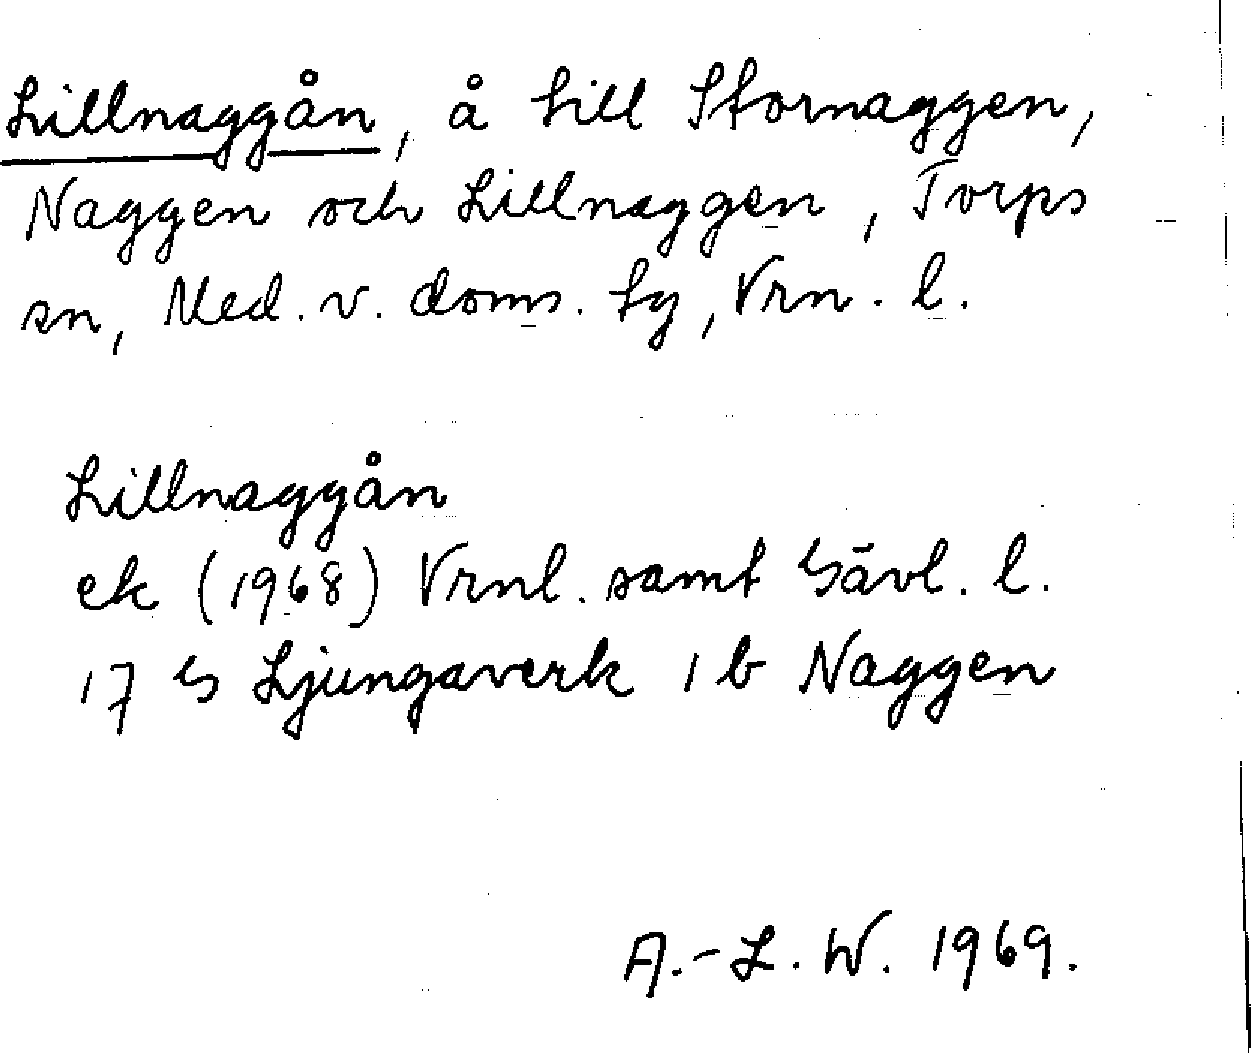 Lillnaggån, å till Stornaggen,
Naggen och Lillnaggen, Torps
sn, Med. v. doms. tg, Vrn. l.
Lillnaggån
ek (1968) Vrnl. samt Gävl. l.
17 G Ljungaverk 1 b Naggen
A.-L. W. 1969.